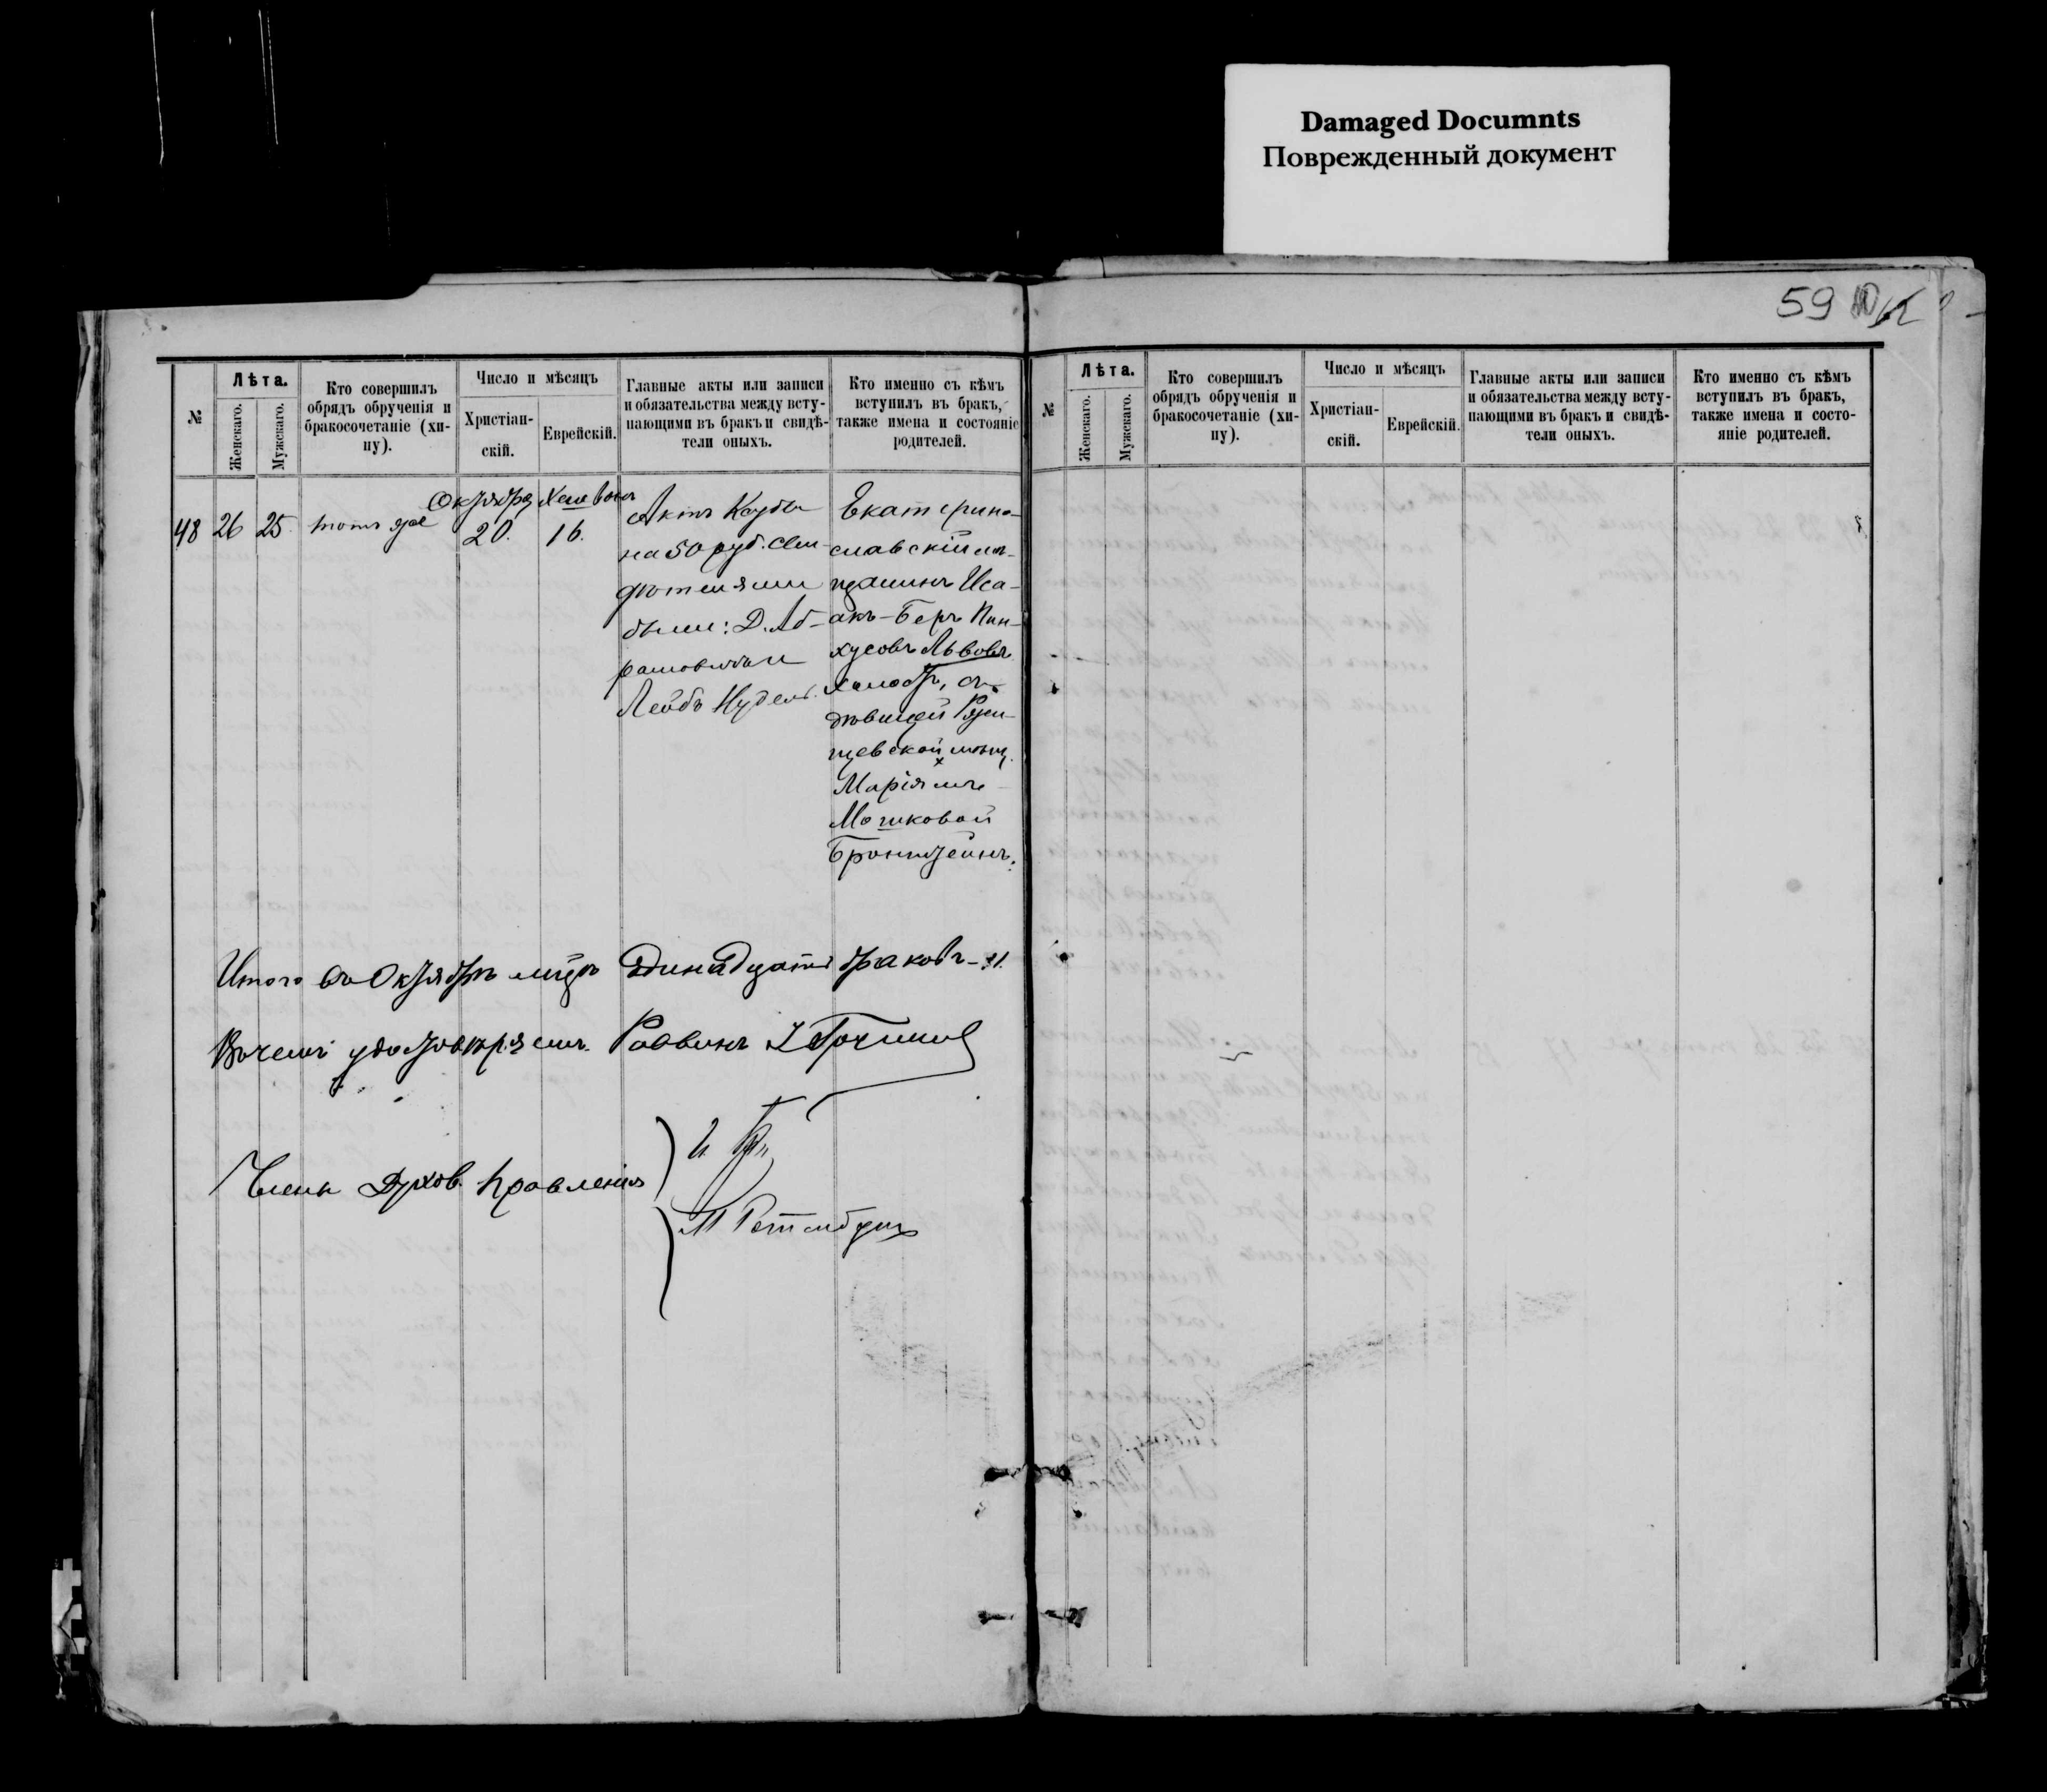 Damaged Documnts
Поврежденный документ
59
№
Лѣта.
Женскаго.
Мужскаго.
Кто совершилъ
обрядъ обрученія и
бракосочетаніе (хи-
пу).
Число и мѣсяцъ
Христіан-
скій.
Еврейскій.
Главные акты или записи
и обязательства между всту-
пающими въ бракъ и свидѣ-
тели оныхъ.
Кто именно съ кѣмъ
вступилъ въ бракъ,
также имена и состояніе
родителей.
48 26 25 тотъ же
Октября
20.
Хешвонъ
16.
Актъ Ксубы
на 50 руб. Сви-
дѣтелями
были: Д. Аб-
рамовичъ и
Лейбъ Нудель.
Екатерино-
славскій мѣ-
щанинъ Иса-
акъ-Беръ Пин-
хусовъ Львовъ
холостъ, съ
дѣвицей
щевской мѣщ.
Маріямъ
Мошковой
Бронштейнъ.
Итого въ Октябрѣ м-цѣ Одинадцать браковъ - 11.
Въ чемъ удостовѣряемъ. Раввинъ
Члены Духов. Правленія
№
Лѣта.
Женскаго.
Мужскаго.
Кто совершилъ
обрядъ обрученія и
бракосочетаніе (хи-
пу).
Число и мѣсяцъ
Христіан-
скій.
Еврейскій.
Главные акты или записи
и обязательства между всту-
пающими въ бракъ и свидѣ-
тели оныхъ.
Кто именно съ кѣмъ
вступилъ въ бракъ,
также имена и состо-
яніе родителей.